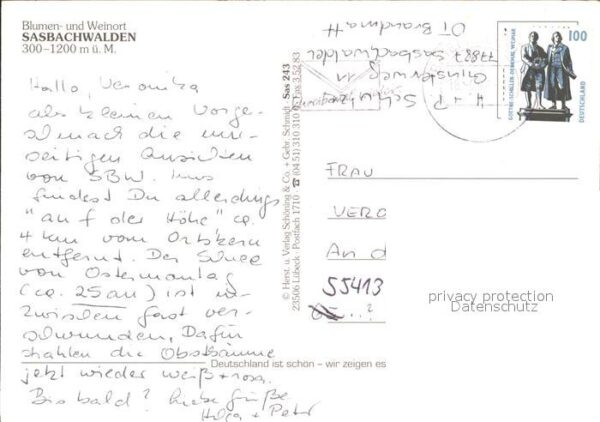 Blumen- und Weinort
SASBACHWALDEN
300-1200 m ü. M.
Hallo, Veronika
als kleinen Vorge-
schmack die um-
seitigen Ansichten
von SBW. Uns
findest Du allerdings
"auf der Höhe" ca.
4 km vom Ortskern
entfernt. Der Schnee
von Ostermontag
(ca. 25 cm) ist in-
zwischen fast ver-
schwunden, Dafür
strahlen die Obstbäume
jetzt wieder weiß + rosa.
Bis bald? Liebe Grüße
Helga + Peter
Deutschland ist schön - wir zeigen es
© Herst. u. Verlag Schöning & Co. + Gebr. Schmidt Sas 243
23506 Lübeck · Postfach 1710 · ☎ (04 51) 310 310 Fax 3 52 83
H. + P.
77887 Sasbachwalden
OT Brandmatt
100
GOETHE-SCHILLER-DENKMAL WEIMAR
DEUTSCHLAND
FRAU
VERO
An d
55413
...?
privacy protection
Datenschutz